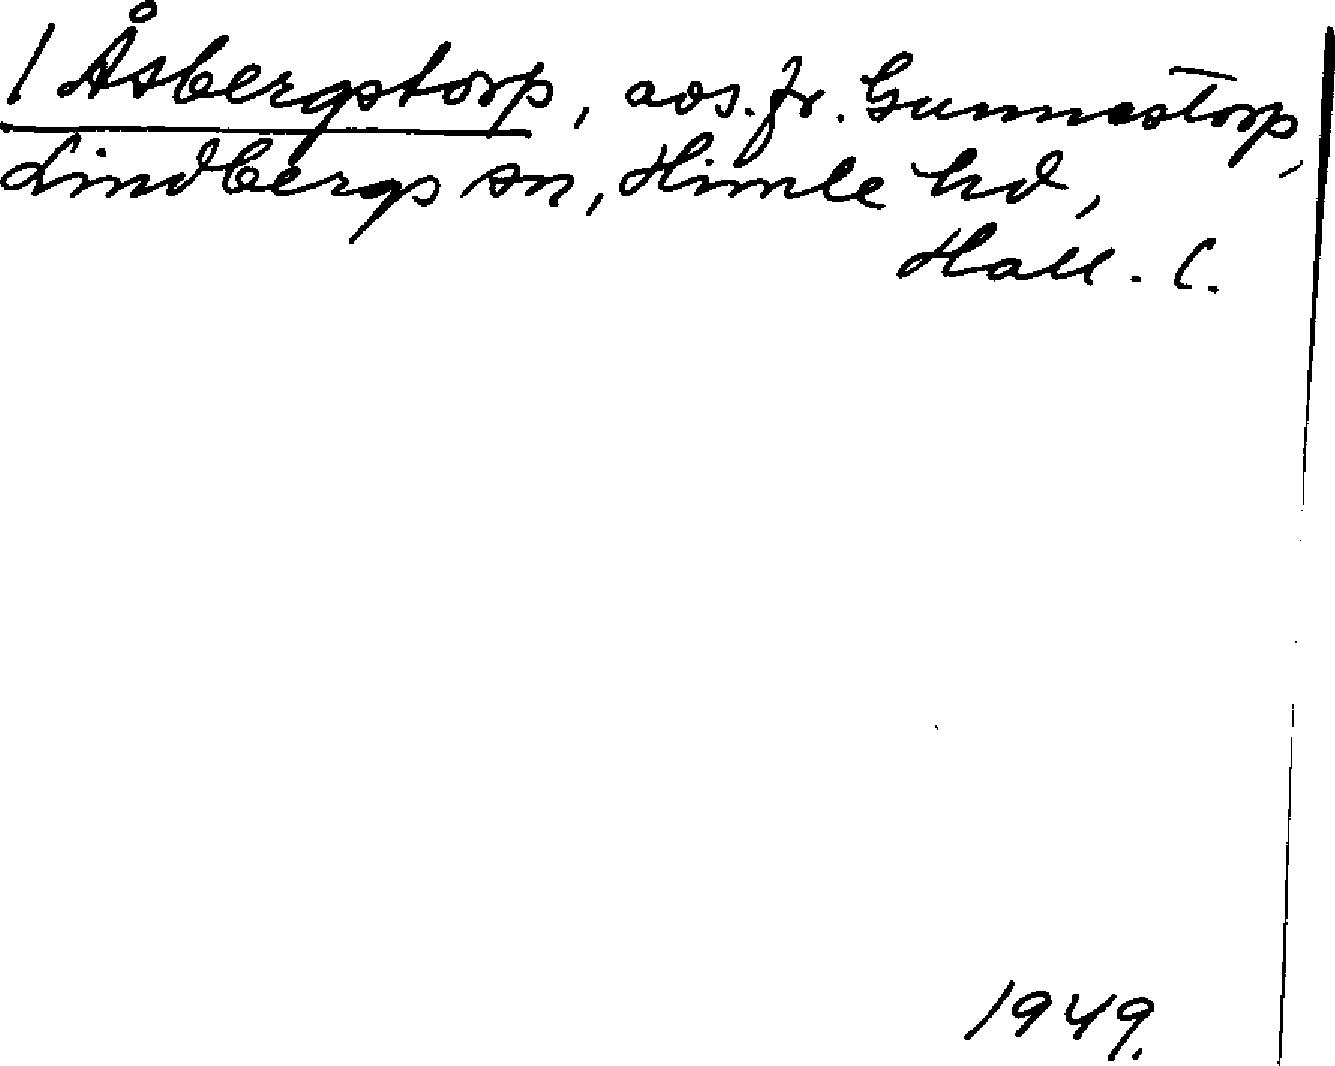 / Åsbergstorp, avs. fr. Gunnestorp,
Lindbergs sn, Himle hd,
Hall. l.
1949.